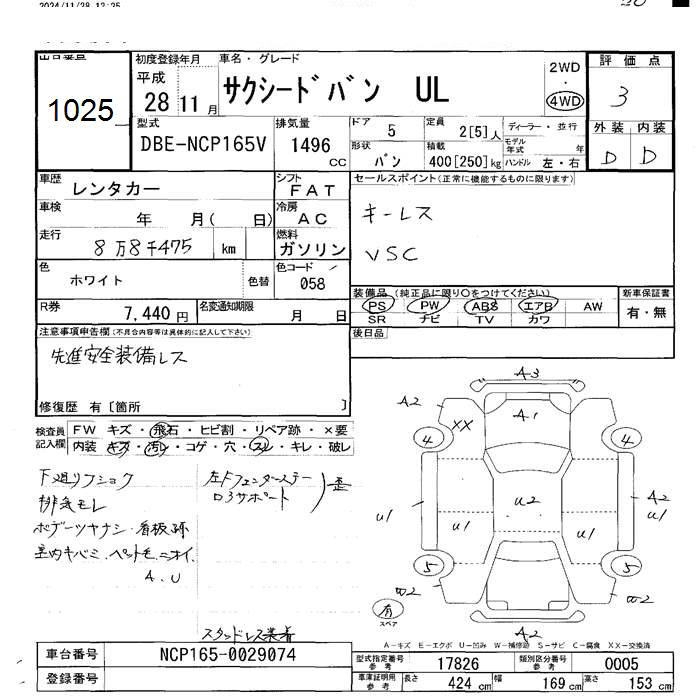 2024/11/28 12:25
1025
初度登録年月
平成
28 11 月
車名・グレード
サクシードバン UL
2WD
・
4WD
評価点
3
型式
DBE-NCP165V
排気量
1496
cc
ドア
5
定員
2[5]人
ディーラー・並行
形状
バン
積載
400[250]kg
モデル年式
年
ハンドル 左・右
外装 内装
D D
車歴
レンタカー
シフト
FAT
車検
年 月( 日)
冷房
AC
走行
8万8千475 km
燃料
ガソリン
セールスポイント(正常に機能するものに限ります)
キーレス
VSC
色
ホワイト
色替
色コード
058
R券
7,440 円
名変通知期限
月 日
装備品 (純正品に限り○をつけてください)
PS PW ABS エアB AW
SR ナビ TV カワ
新車保証書
有・無
後日品
注意事項申告欄(不具合内容等は具体的に記入して下さい)
先進安全装備レス
修復歴 有〔箇所 〕
検査員
記入欄
FW キズ・飛石・ヒビ割・リペア跡・×要
内装 キズ・汚レ・コゲ・穴・スレ・キレ・破レ
下廻リフショク
排気モレ
ボデーツヤナシ・看板跡
室内キバミ、ペット毛、ニオイ、
A.U
左Fフェンダーステー
ロアサポート
歪
スタッドレス装着
A3
A2
XX
A1
4
4
U1
U1
U2
U1
A2
U1
5
5
W2
W2
A2
有
スペア
A-キズ E-エクボ U-凹み W-補修跡 S-サビ C-腐食 XX-交換済
車台番号
NCP165-0029074
登録番号
型式指定番号
参考
17826
類別区分番号
参考
0005
車庫証明用
参考
長さ 424 cm
幅 169 cm
高さ 153 cm